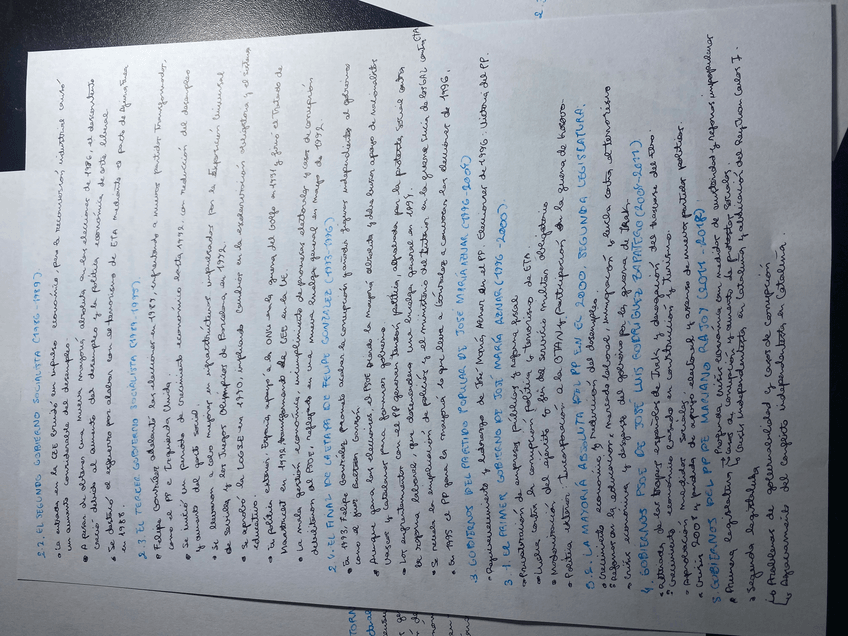 2.2. EL SEGUNDO GOBIERNO SOCIALISTA (1986-1989)
• La entrada en la CEE brindó un respiro económico, pero la reconversión industrial causó
un aumento considerable del desempleo.
• A pesar de obtener una nueva mayoría absoluta en las elecciones de 1986, el descontento
creció debido al aumento del desempleo y la política económica de corte liberal.
• Se destacó el esfuerzo por acabar con el terrorismo de ETA mediante el pacto de Ajuria Enea
en 1988.
2.3. EL TERCER GOBIERNO SOCIALISTA (1989-1993)
• Felipe González adelantó las elecciones en 1989, enfrentando a nuevos partidos transformados,
como el PP e Izquierda Unida.
• Se inició un período de crecimiento económico hasta 1992, con reducción del desempleo
y aumento del gasto social.
• Se llevaron a cabo mejoras en infraestructuras impulsadas por la Exposición Universal
de Sevilla y los Juegos Olímpicos de Barcelona en 1992.
• Se aprobó la LOGSE en 1990, implicando cambios en la escolarización obligatoria y el sistema
educativo.
• En política exterior, España apoyó a la ONU en la guerra del Golfo en 1991 y firmó el Tratado de
Maastricht en 1992 transformando la CEE en la UE.
• La mala gestión económica, incumplimiento de promesas electorales y casos de corrupción
debilitaron al PSOE, reflejado en una nueva huelga general en mayo de 1992.
2.4. EL FINAL DE LA ETAPA DE FELIPE GONZÁLEZ (1993-1996)
• En 1993 Felipe González prometió acabar la corrupción y añadió figuras independientes al gobierno
como el juez Baltasar Garzón.
• Aunque ganó las elecciones, el PSOE perdió la mayoría absoluta y debió buscar apoyo de nacionalistas
vascos y catalanes para formar gobierno.
• Los enfrentamientos con el PP generaron tensión política, agravada por la protesta social contra
la reforma laboral, que desencadenó una huelga general en 1994.
• Se reveló la implicación de policías y el ministerio del Interior en la guerra sucia de los GAL contra ETA
• En 1995 el PP ganó la mayoría lo que llevó a González a convocar las elecciones de 1996.
3. GOBIERNOS DEL PARTIDO POPULAR DE JOSE MARÍA AZNAR (1996-2004)
• y liderazgo de José María Aznar en el PP. Elecciones de 1996. Victoria del PP.
3.1. EL PRIMER GOBIERNO DE JOSÉ MARÍA AZNAR (1996-2000)
• Privatización de empresas públicas y reforma fiscal
• Lucha contra la corrupción política y terrorismo de ETA.
• Modernización del ejército y fin del servicio militar obligatorio
• Política exterior: Incorporación a la OTAN y participación en la guerra de Kosovo.
3.2. LA MAYORÍA ABSOLUTA DEL PP EN EL 2000. SEGUNDA LEGISLATURA.
• Crecimiento económico y reducción del desempleo
• Reformas en la educación, mercado laboral, inmigración y lucha contra el terrorismo
• Crisis económica y desgaste del gobierno por la guerra de Irak.
4. GOBIERNOS PSOE DE JOSÉ LUIS RODRÍGUEZ ZAPATERO (2004-2011)
• Retirada de las tropas españolas de Irak y
• Crecimiento económico basado en construcción y turismo.
• Aprobación medidas sociales.
• Crisis 2008 y pérdida de apoyo electoral y ascenso de nuevos partidos políticos.
5. GOBIERNOS DEL PP DE MARIANO RAJOY (2011-2018)
• Primera legislatura → Profunda crisis económica con medidas de austeridad y reformas impopulares
→ Casos de corrupción y aumento de protestas sociales
↳ Crisis independentista en Cataluña y abdicación del Rey Juan Carlos I.
• Segunda legislatura
↳ Problemas de gobernabilidad y casos de corrupción
↳ Agravamiento del conflicto independentista en Cataluña